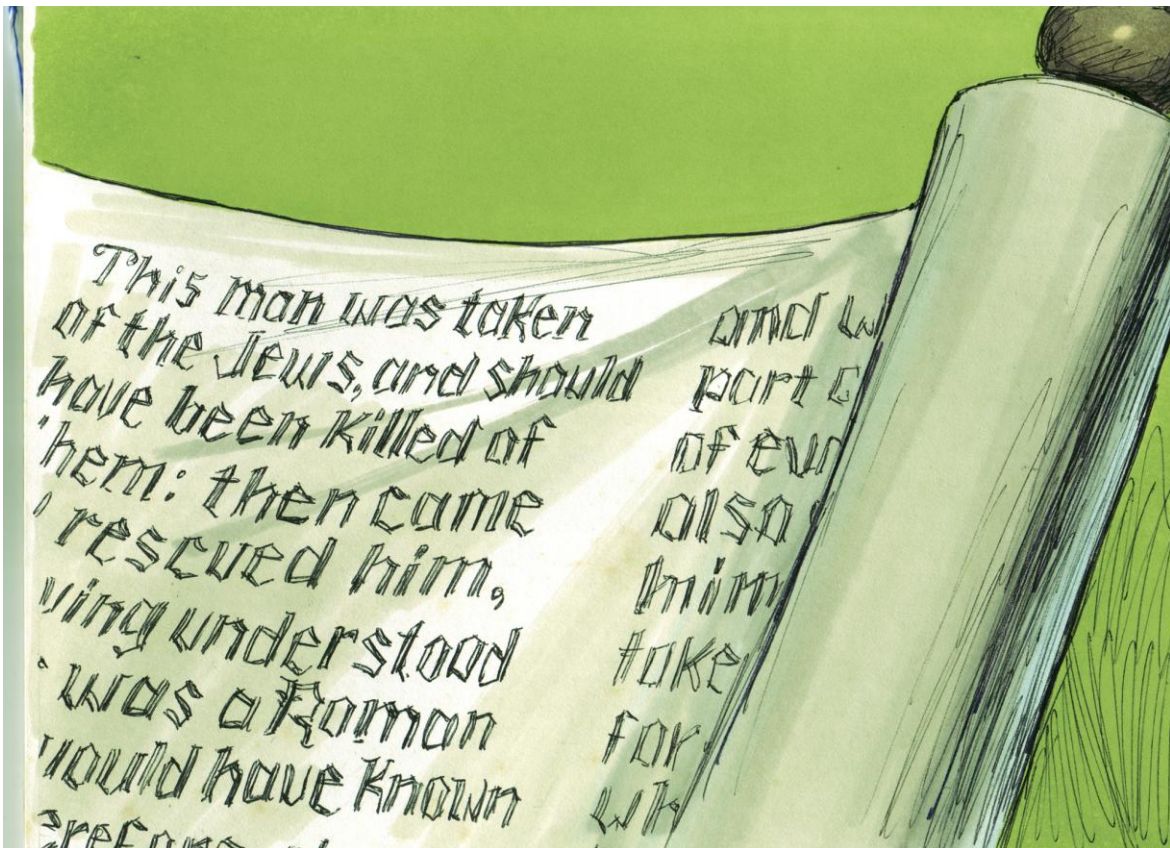 This man was taken
of the Jews, and should
have been Killed of
hem: then came
rescued him,
ving understood
was a Roman
would have Known
and
part
of
also
take
for